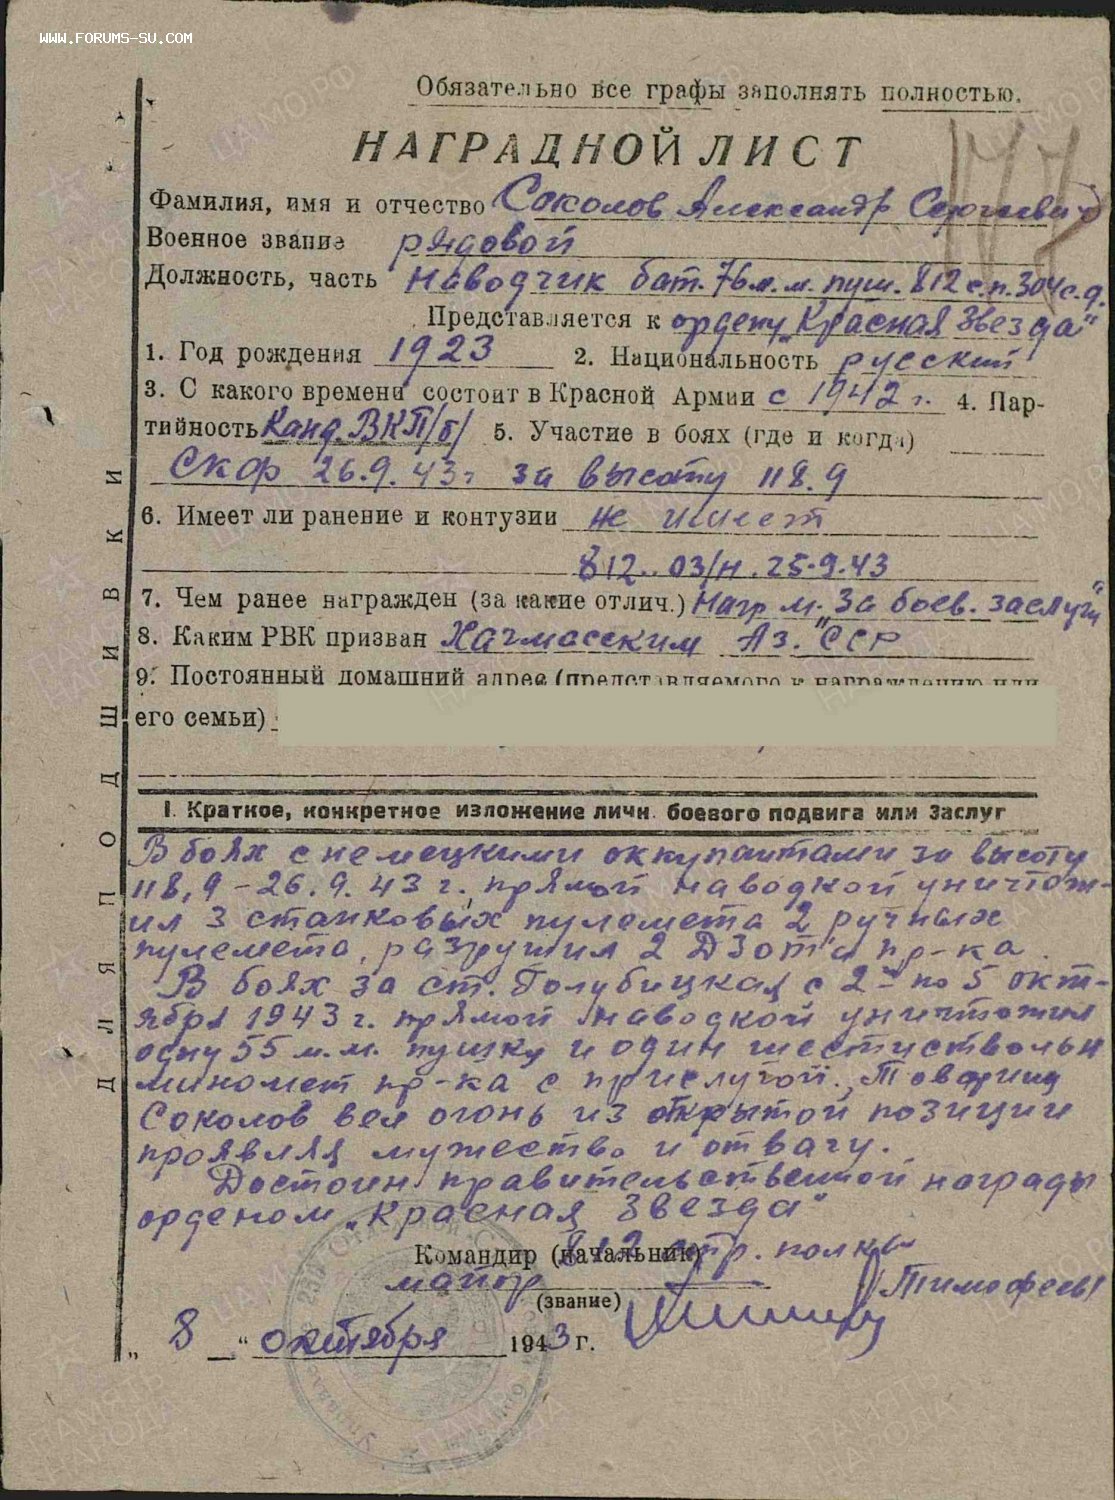 WWW.FORUMS-SU.COM
Обязательно все графы заполнять полностью.
НАГРАДНОЙ ЛИСТ
Фамилия, имя и отчество Соколов Александр Сергеевич
Военное звание рядовой
Должность, часть наводчик бат. 76 м.м. пуш. 812 с.п. 304 с.д.
Представляется к ордену "Красная Звезда"
1. Год рождения 1923 2. Национальность русский
3. С какого времени состоит в Красной Армии с 1942 г. 4. Пар-
тийность Канд. ВКП/б/ 5. Участие в боях (где и когда)
СКФ 26.9.43 г за высоту 118.9
6. Имеет ли ранение и контузии не имеет
812. 03/н. 25.9.43
7. Чем ранее награжден (за какие отлич.) Нагр м. "За боев. заслуги"
8. Каким РВК призван Хачмасским Аз. ССР
9. Постоянный домашний адрес (представляемого к награждению или
его семьи)
ДЛЯ ПОДШИВКИ
I. Краткое, конкретное изложение личн. боевого подвига или заслуг
В боях с немецкими оккупантами за высоту
118,9 - 26.9.43 г. прямой наводкой уничтож-
ил 3 станковых пулемета 2 ручных
пулемета, разрушил 2 ДЗОТ'а пр-ка.
В боях за ст. Голубицкая с 2 по 5 окт-
ября 1943 г. прямой наводкой уничтожил
одну 55 м.м. пушку и один шестиствольн
миномет пр-ка с прислугой. Товарищ
Соколов вел огонь из открытой позиции
проявляя мужество и отвагу.
Достоин правительственной награды
орденом "Красная Звезда"
Командир (начальник) 812 стр. полка
майор Тимофеев
(звание)
„ 8 “ октября 1943 г.